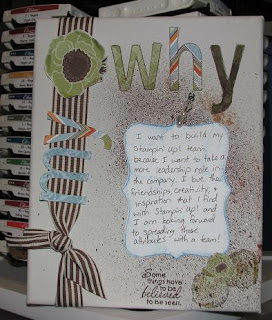 why
my
I want to build my
Stampin' Up! team
because I want to take a
more leadership role in
the company. I love the
friendships, creativity, &
inspiration that I find
with Stampin' Up! and I
am looking forward
to spreading those
attributes with a team!
Some
things have
to be
believed
to be seen.